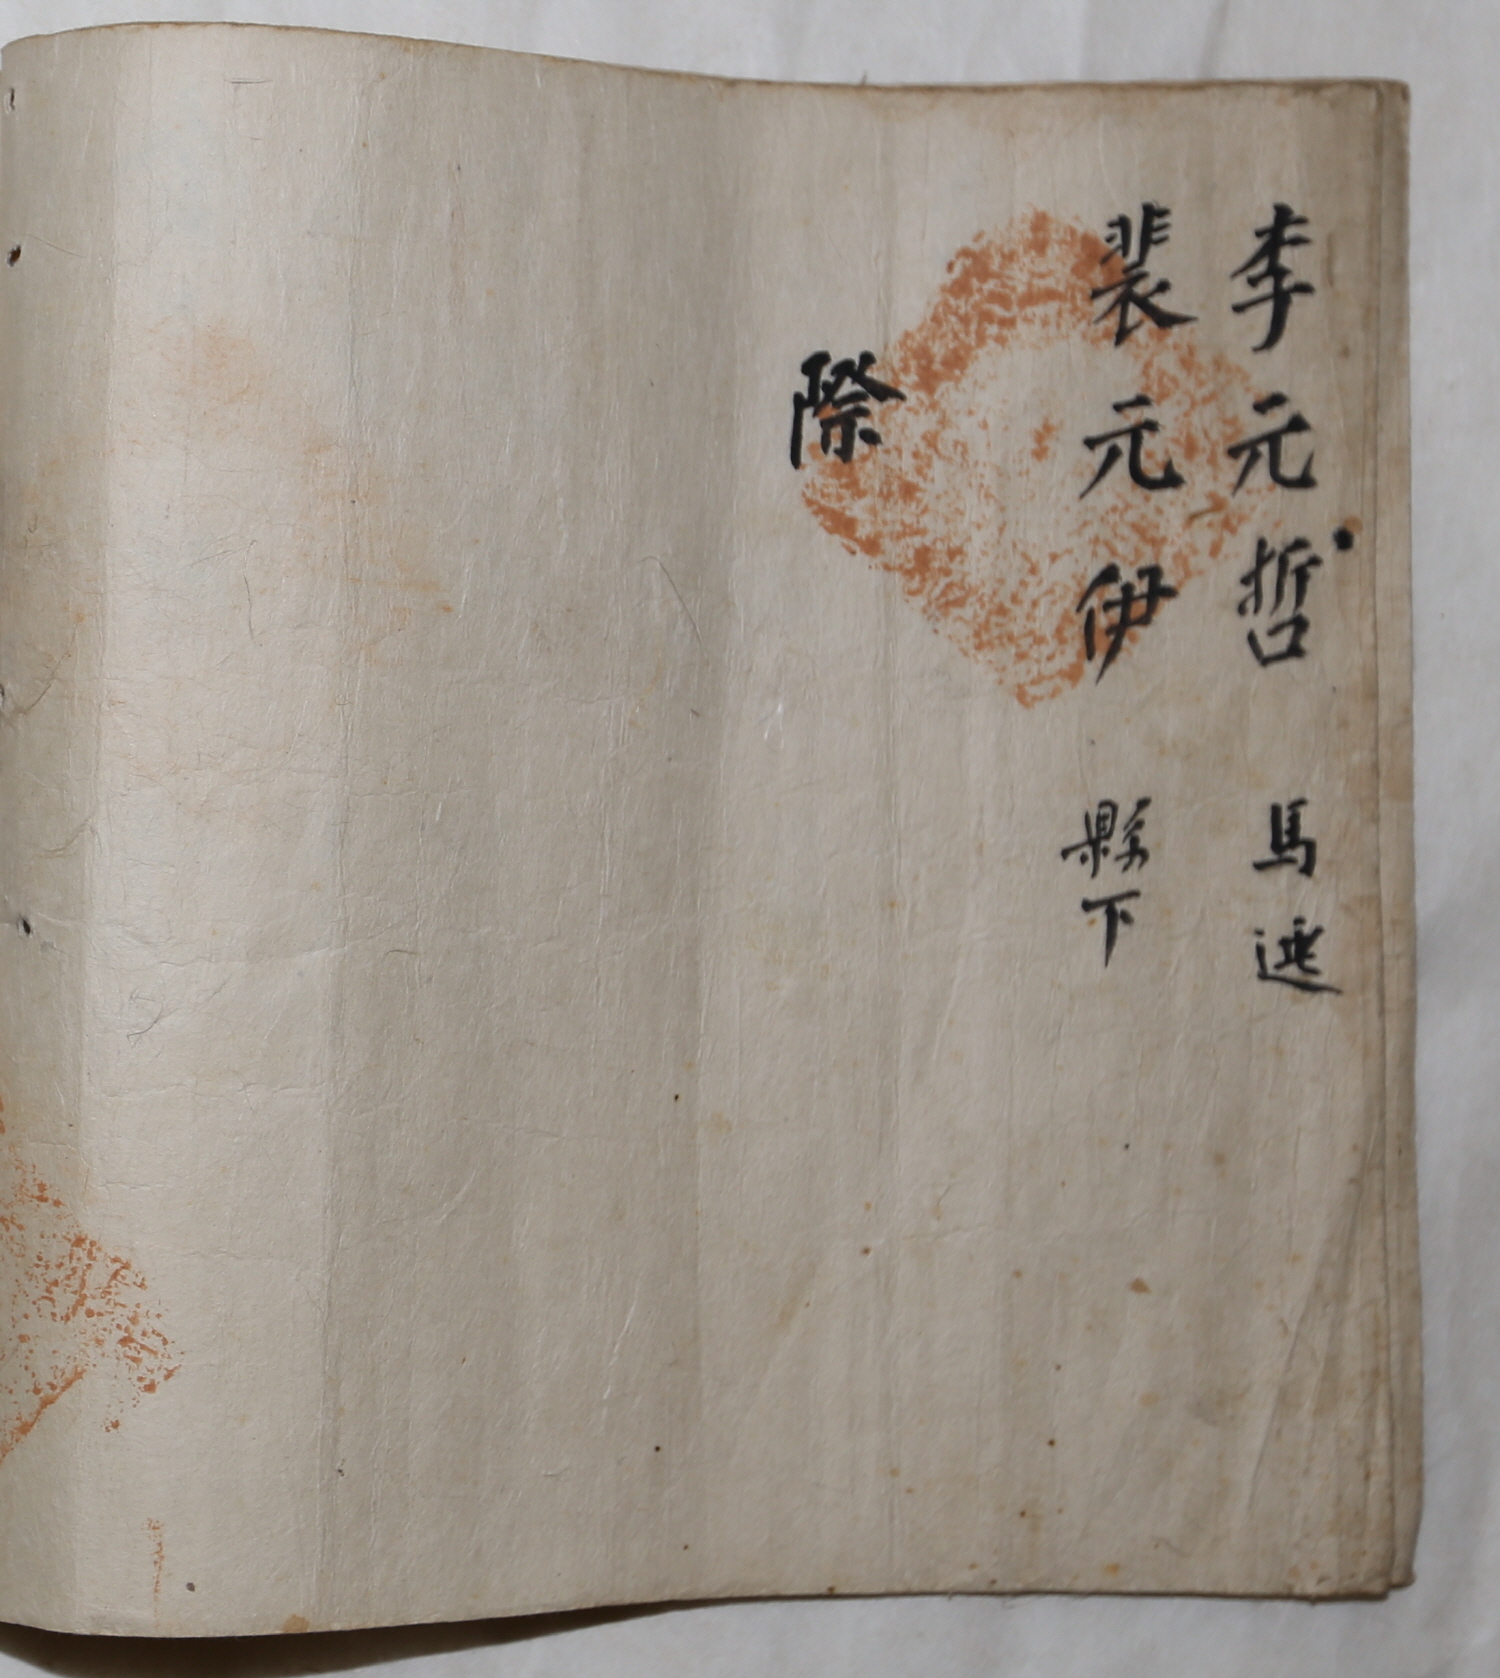 李元哲 馬逃
裴元伊 縣下
際